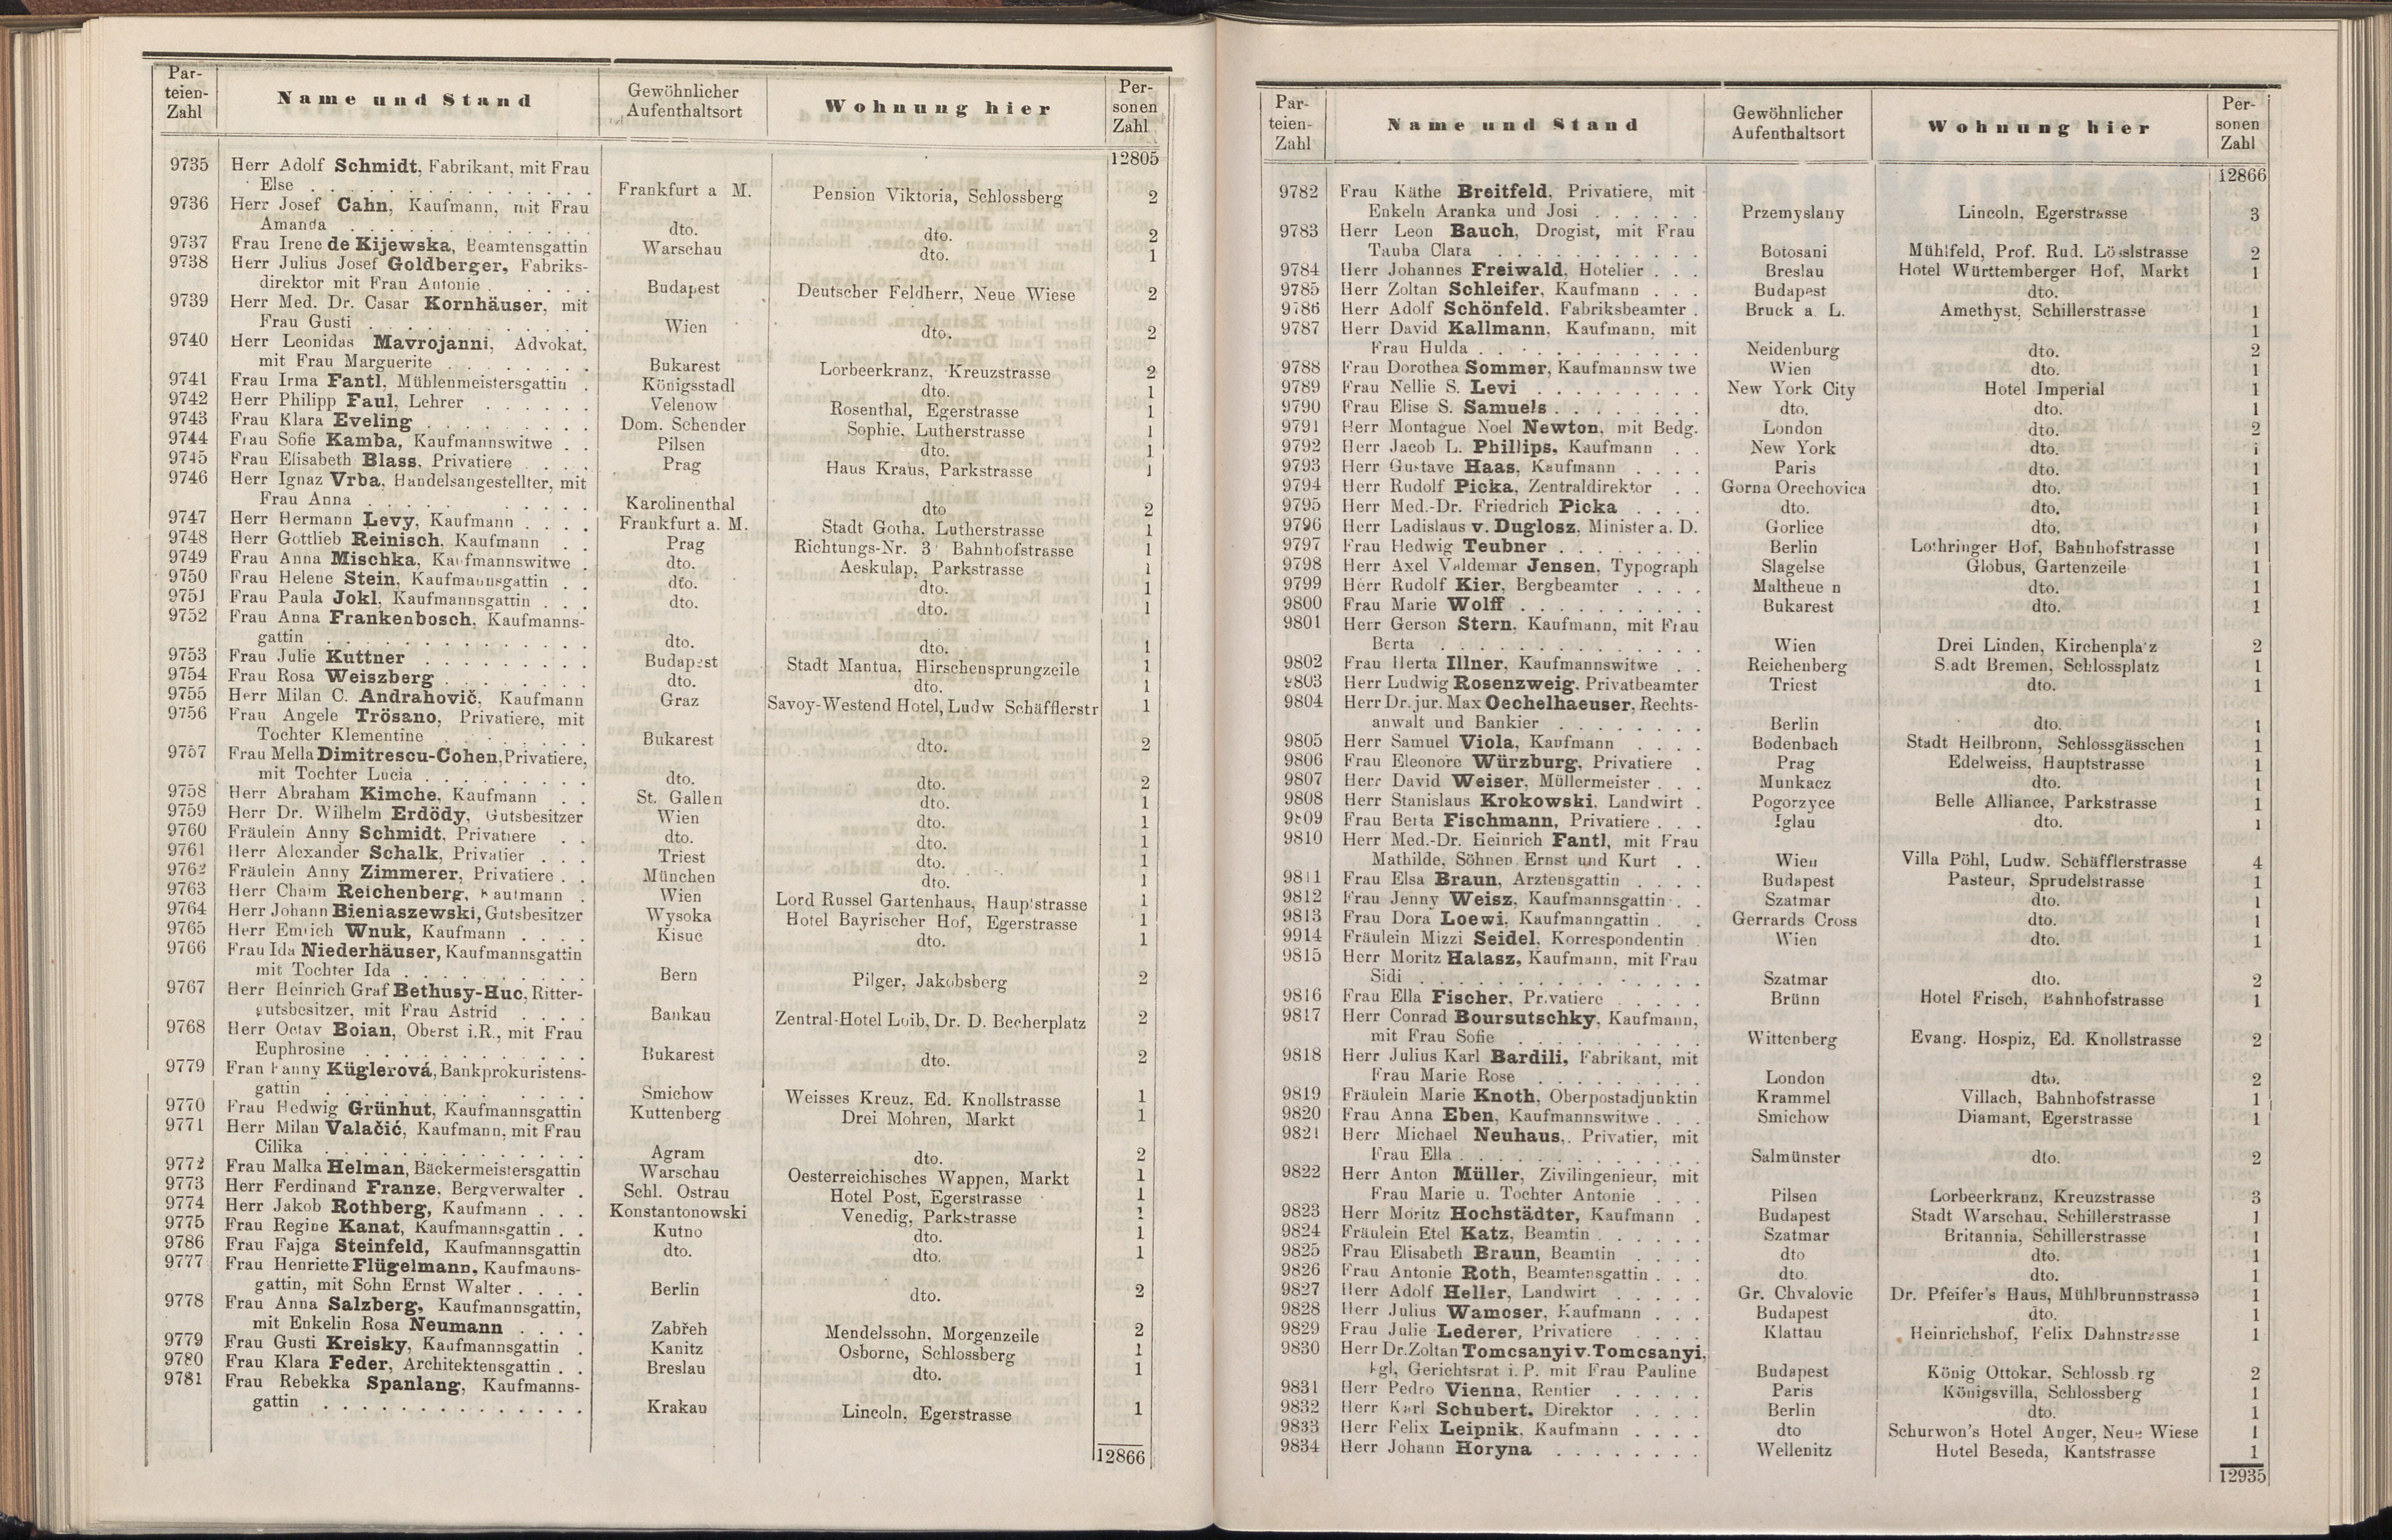 Par-
teien-
Zahl
Name und Stand
Gewöhnlicher
Aufenthaltsort
Wohnung hier
Per-
sonen
Zahl
12805
9735 Herr Adolf Schmidt, Fabrikant, mit Frau
Else . . . Frankfurt a M. Pension Viktoria, Schlossberg 2
9736 Herr Josef Cahn, Kaufmann, mit Frau
Amanda . . . dto. dto. 2
9737 Frau Irene de Kijewska, Beamtensgattin Warschau dto. 1
9738 Herr Julius Josef Goldberger, Fabriks-
direktor mit Frau Antonie . . . Budapest Deutscher Feldherr, Neue Wiese 2
9739 Herr Med. Dr. Casar Kornhäuser, mit
Frau Gusti . . . Wien dto. 2
9740 Herr Leonidas Mavrojanni, Advokat,
mit Frau Marguerite . . . Bukarest Lorbeerkranz, Kreuzstrasse 2
9741 Frau Irma Fantl, Mühlenmeistersgattin . Königsstadl dto. 1
9742 Herr Philipp Faul, Lehrer . . . Velenow Rosenthal, Egerstrasse 1
9743 Frau Klara Eveling . . . Dom. Schender Sophie, Lutherstrasse 1
9744 Frau Sofie Kamba, Kaufmannswitwe . . Pilsen dto. 1
9745 Frau Elisabeth Blass, Privatiere . . . Prag Haus Kraus, Parkstrasse 1
9746 Herr Ignaz Vrba, Handelsangestellter, mit
Frau Anna . . . Karolinenthal dto 2
9747 Herr Hermann Levy, Kaufmann . . . . Frankfurt a. M. Stadt Gotha, Lutherstrasse 1
9748 Herr Gottlieb Reinisch, Kaufmann . . Prag Richtungs-Nr. 3 Bahnhofstrasse 1
9749 Frau Anna Mischka, Kaufmannswitwe . dto. Aeskulap, Parkstrasse 1
9750 Frau Helene Stein, Kaufmannsgattin . . dto. dto. 1
9751 Frau Paula Jokl, Kaufmannsgattin . . . dto. dto. 1
9752 Frau Anna Frankenbosch, Kaufmanns-
gattin . . . dto. dto. 1
9753 Frau Julie Kuttner . . . Budapest Stadt Mantua, Hirschensprungzeile 1
9754 Frau Rosa Weiszberg . . . dto. dto. 1
9755 Herr Milan C. Andrahovič, Kaufmann Graz Savoy-Westend Hotel, Ludw Schäfflerstr 1
9756 Frau Angele Trösano, Privatiere, mit
Tochter Klementine . . . Bukarest dto. 2
9757 Frau Mella Dimitrescu-Cohen, Privatiere,
mit Tochter Lucia . . . dto. dto. 2
9758 Herr Abraham Kimche, Kaufmann . . St. Gallen dto. 1
9759 Herr Dr. Wilhelm Erdödy, Gutsbesitzer Wien dto. 1
9760 Fräulein Anny Schmidt, Privatiere . . dto. dto. 1
9761 Herr Alexander Schalk, Privatier . . . Triest dto. 1
9762 Fräulein Anny Zimmerer, Privatiere . . München dto. 1
9763 Herr Chaim Reichenberg, Kaufmann . Wien Lord Russel Gartenhaus, Hauptstrasse 1
9764 Herr Johann Bieniaszewski, Gutsbesitzer Wysoka Hotel Bayrischer Hof, Egerstrasse 1
9765 Herr Emerich Wnuk, Kaufmann . . . . Kisuc dto. 1
9766 Frau Ida Niederhäuser, Kaufmannsgattin
mit Tochter Ida . . . Bern Pilger, Jakobsberg 2
9767 Herr Heinrich Graf Bethusy-Huc, Ritter-
gutsbesitzer, mit Frau Astrid . . . . Bankau Zentral-Hotel Loib, Dr. D. Becherplatz 2
9768 Herr Octav Boian, Oberst i.R., mit Frau
Euphrosine . . . Bukarest dto. 2
9779 Frau Fanny Küglerová, Bankprokuristens-
gattin . . . Smichow Weisses Kreuz, Ed. Knollstrasse 1
9770 Frau Hedwig Grünhut, Kaufmannsgattin Kuttenberg Drei Mohren, Markt 1
9771 Herr Milan Valačić, Kaufmann, mit Frau
Cilika . . . Agram dto. 2
9772 Frau Malka Helman, Bäckermeistersgattin Warschau Oesterreichisches Wappen, Markt 1
9773 Herr Ferdinand Franze, Bergverwalter . Schl. Ostrau Hotel Post, Egerstrasse 1
9774 Herr Jakob Rothberg, Kaufmann . . . Konstantonowski Venedig, Parkstrasse 1
9775 Frau Regine Kanat, Kaufmannsgattin . . Kutno dto. 1
9786 Frau Fajga Steinfeld, Kaufmannsgattin dto. dto. 1
9777 Frau Henriette Flügelmann, Kaufmanns-
gattin, mit Sohn Ernst Walter . . . . Berlin dto. 2
9778 Frau Anna Salzberg, Kaufmannsgattin,
mit Enkelin Rosa Neumann . . . . Zabřeh Mendelssohn, Morgenzeile 2
9779 Frau Gusti Kreisky, Kaufmannsgattin . Kanitz Osborne, Schlossberg 1
9780 Frau Klara Feder, Architektensgattin . . Breslau dto. 1
9781 Frau Rebekka Spanlang, Kaufmanns-
gattin . . . Krakau Lincoln, Egerstrasse 1
12866
Par-
teien-
Zahl
Name und Stand
Gewöhnlicher
Aufenthaltsort
Wohnung hier
Per-
sonen
Zahl
12866
9782 Frau Käthe Breitfeld, Privatiere, mit
Enkeln Aranka und Josi . . . Przemyslany Lincoln, Egerstrasse 3
9783 Herr Leon Bauch, Drogist, mit Frau
Tauba Clara . . . Botosani Mühlfeld, Prof. Rud. Lösslstrasse 2
9784 Herr Johannes Freiwald, Hotelier . . . Breslau Hotel Württemberger Hof, Markt 1
9785 Herr Zoltan Schleifer, Kaufmann . . . Budapest dto.
9786 Herr Adolf Schönfeld, Fabriksbeamter . Bruck a. L. Amethyst, Schillerstrasse 1
9787 Herr David Kallmann, Kaufmann, mit 1
Frau Hulda . . . Neidenburg dto. 2
9788 Frau Dorothea Sommer, Kaufmannsw twe Wien dto. 1
9789 Frau Nellie S. Levi . . . New York City Hotel Imperial 1
9790 Frau Elise S. Samuels . . . dto. dto. 1
9791 Herr Montague Noel Newton, mit Bedg. London dto. 2
9792 Herr Jacob L. Phillips, Kaufmann . . New York dto. 1
9793 Herr Gustave Haas, Kaufmann . . . . Paris dto. 1
9794 Herr Rudolf Picka, Zentraldirektor . . Gorna Orechovica dto. 1
9795 Herr Med.-Dr. Friedrich Picka . . . . dto. dto. 1
9796 Herr Ladislaus v. Duglosz, Minister a. D. Gorlice dto. 1
9797 Frau Hedwig Teubner . . . Berlin Lothringer Hof, Bahnhofstrasse 1
9798 Herr Axel Valdemar Jensen, Typograph Slagelse Globus, Gartenzeile 1
9799 Herr Rudolf Kier, Bergbeamter . . . . Maltheue n dto. 1
9800 Frau Marie Wolff . . . Bukarest dto. 1
9801 Herr Gerson Stern, Kaufmann, mit Frau
Berta . . . Wien Drei Linden, Kirchenplatz 2
9802 Frau Herta Illner, Kaufmannswitwe . . Reichenberg Stadt Bremen, Schlossplatz 1
9803 Herr Ludwig Rosenzweig, Privatbeamter Triest dto. 1
9804 Herr Dr. jur. Max Oechelhaeuser, Rechts-
anwalt und Bankier . . . Berlin dto. 1
9805 Herr Samuel Viola, Kaufmann . . . . Bodenbach Stadt Heilbronn, Schlossgässchen 1
9806 Frau Eleonore Würzburg, Privatiere . Prag Edelweiss, Hauptstrasse 1
9807 Herr David Weiser, Müllermeister . . . Munkacz dto. 1
9808 Herr Stanislaus Krokowski, Landwirt . Pogorzyce Belle Alliance, Parkstrasse 1
9809 Frau Berta Fischmann, Privatiere . . . Iglau dto. 1
9810 Herr Med.-Dr. Heinrich Fantl, mit Frau
Mathilde, Söhnen Ernst und Kurt . . Wien Villa Pöhl, Ludw. Schäfflerstrasse 4
9811 Frau Elsa Braun, Arztensgattin . . . . Budapest Pasteur, Sprudelstrasse 1
9812 Frau Jenny Weisz, Kaufmannsgattin . . Szatmar dto. 1
9813 Frau Dora Loewi, Kaufmanngattin . . Gerrards Cross dto. 1
9914 Fräulein Mizzi Seidel, Korrespondentin Wien dto. 1
9815 Herr Moritz Halasz, Kaufmann, mit Frau
Sidi . . . Szatmar dto. 2
9816 Frau Ella Fischer, Pr.vatiere . . . . Brünn Hotel Frisch, Bahnhofstrasse 1
9817 Herr Conrad Boursutschky, Kaufmann,
mit Frau Sofie . . . Wittenberg Evang. Hospiz, Ed. Knollstrasse 2
9818 Herr Julius Karl Bardili, Fabrikant, mit
Frau Marie Rose . . . London dto. 2
9819 Fräulein Marie Knoth, Oberpostadjunktin Krammel Villach, Bahnhofstrasse 1
9820 Frau Anna Eben, Kaufmannswitwe . . . Smichow Diamant, Egerstrasse 1
9821 Herr Michael Neuhaus,. Privatier, mit
Frau Ella . . . Salmünster dto. 2
9822 Herr Anton Müller, Zivilingenieur, mit
Frau Marie u. Tochter Antonie . . . Pilsen Lorbeerkranz, Kreuzstrasse 3
9823 Herr Moritz Hochstädter, Kaufmann . Budapest Stadt Warschau, Schillerstrasse 1
9824 Fräulein Etel Katz, Beamtin . . . Szatmar Britannia, Schillerstrasse 1
9825 Frau Elisabeth Braun, Beamtin . . . . dto dto. 1
9826 Frau Antonie Roth, Beamtensgattin . . . dto. dto. 1
9827 Herr Adolf Heller, Landwirt . . . Gr. Chvalovic Dr. Pfeifer's Haus, Mühlbrunnstrasse 1
9828 Herr Julius Wamoser, Kaufmann . . . Budapest dto. 1
9829 Frau Julie Lederer, Privatiere . . . . Klattau Heinrichshof, Felix Dahnstrasse 1
9830 Herr Dr. Zoltan Tomcsanyi v. Tomcsanyi,
kgl, Gerichtsrat i. P. mit Frau Pauline Budapest König Ottokar, Schlossb rg 2
9831 Herr Pedro Vienna, Rentier . . . Paris Königsvilla, Schlossberg 1
9832 Herr Karl Schubert, Direktor . . . . Berlin dto. 1
9833 Herr Felix Leipnik, Kaufmann . . . . dto Schurwon's Hotel Anger, Neue Wiese 1
9834 Herr Johann Horyna . . . Wellenitz Hotel Beseda, Kantstrasse 1
12935